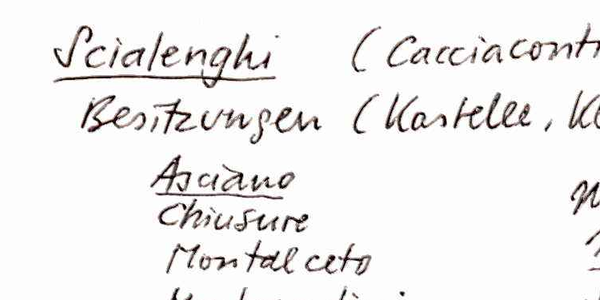 Scialenghi (Cacciacont
Besitzungen (Kastelle, Kl
Asciano
Chiusure
Montalceto